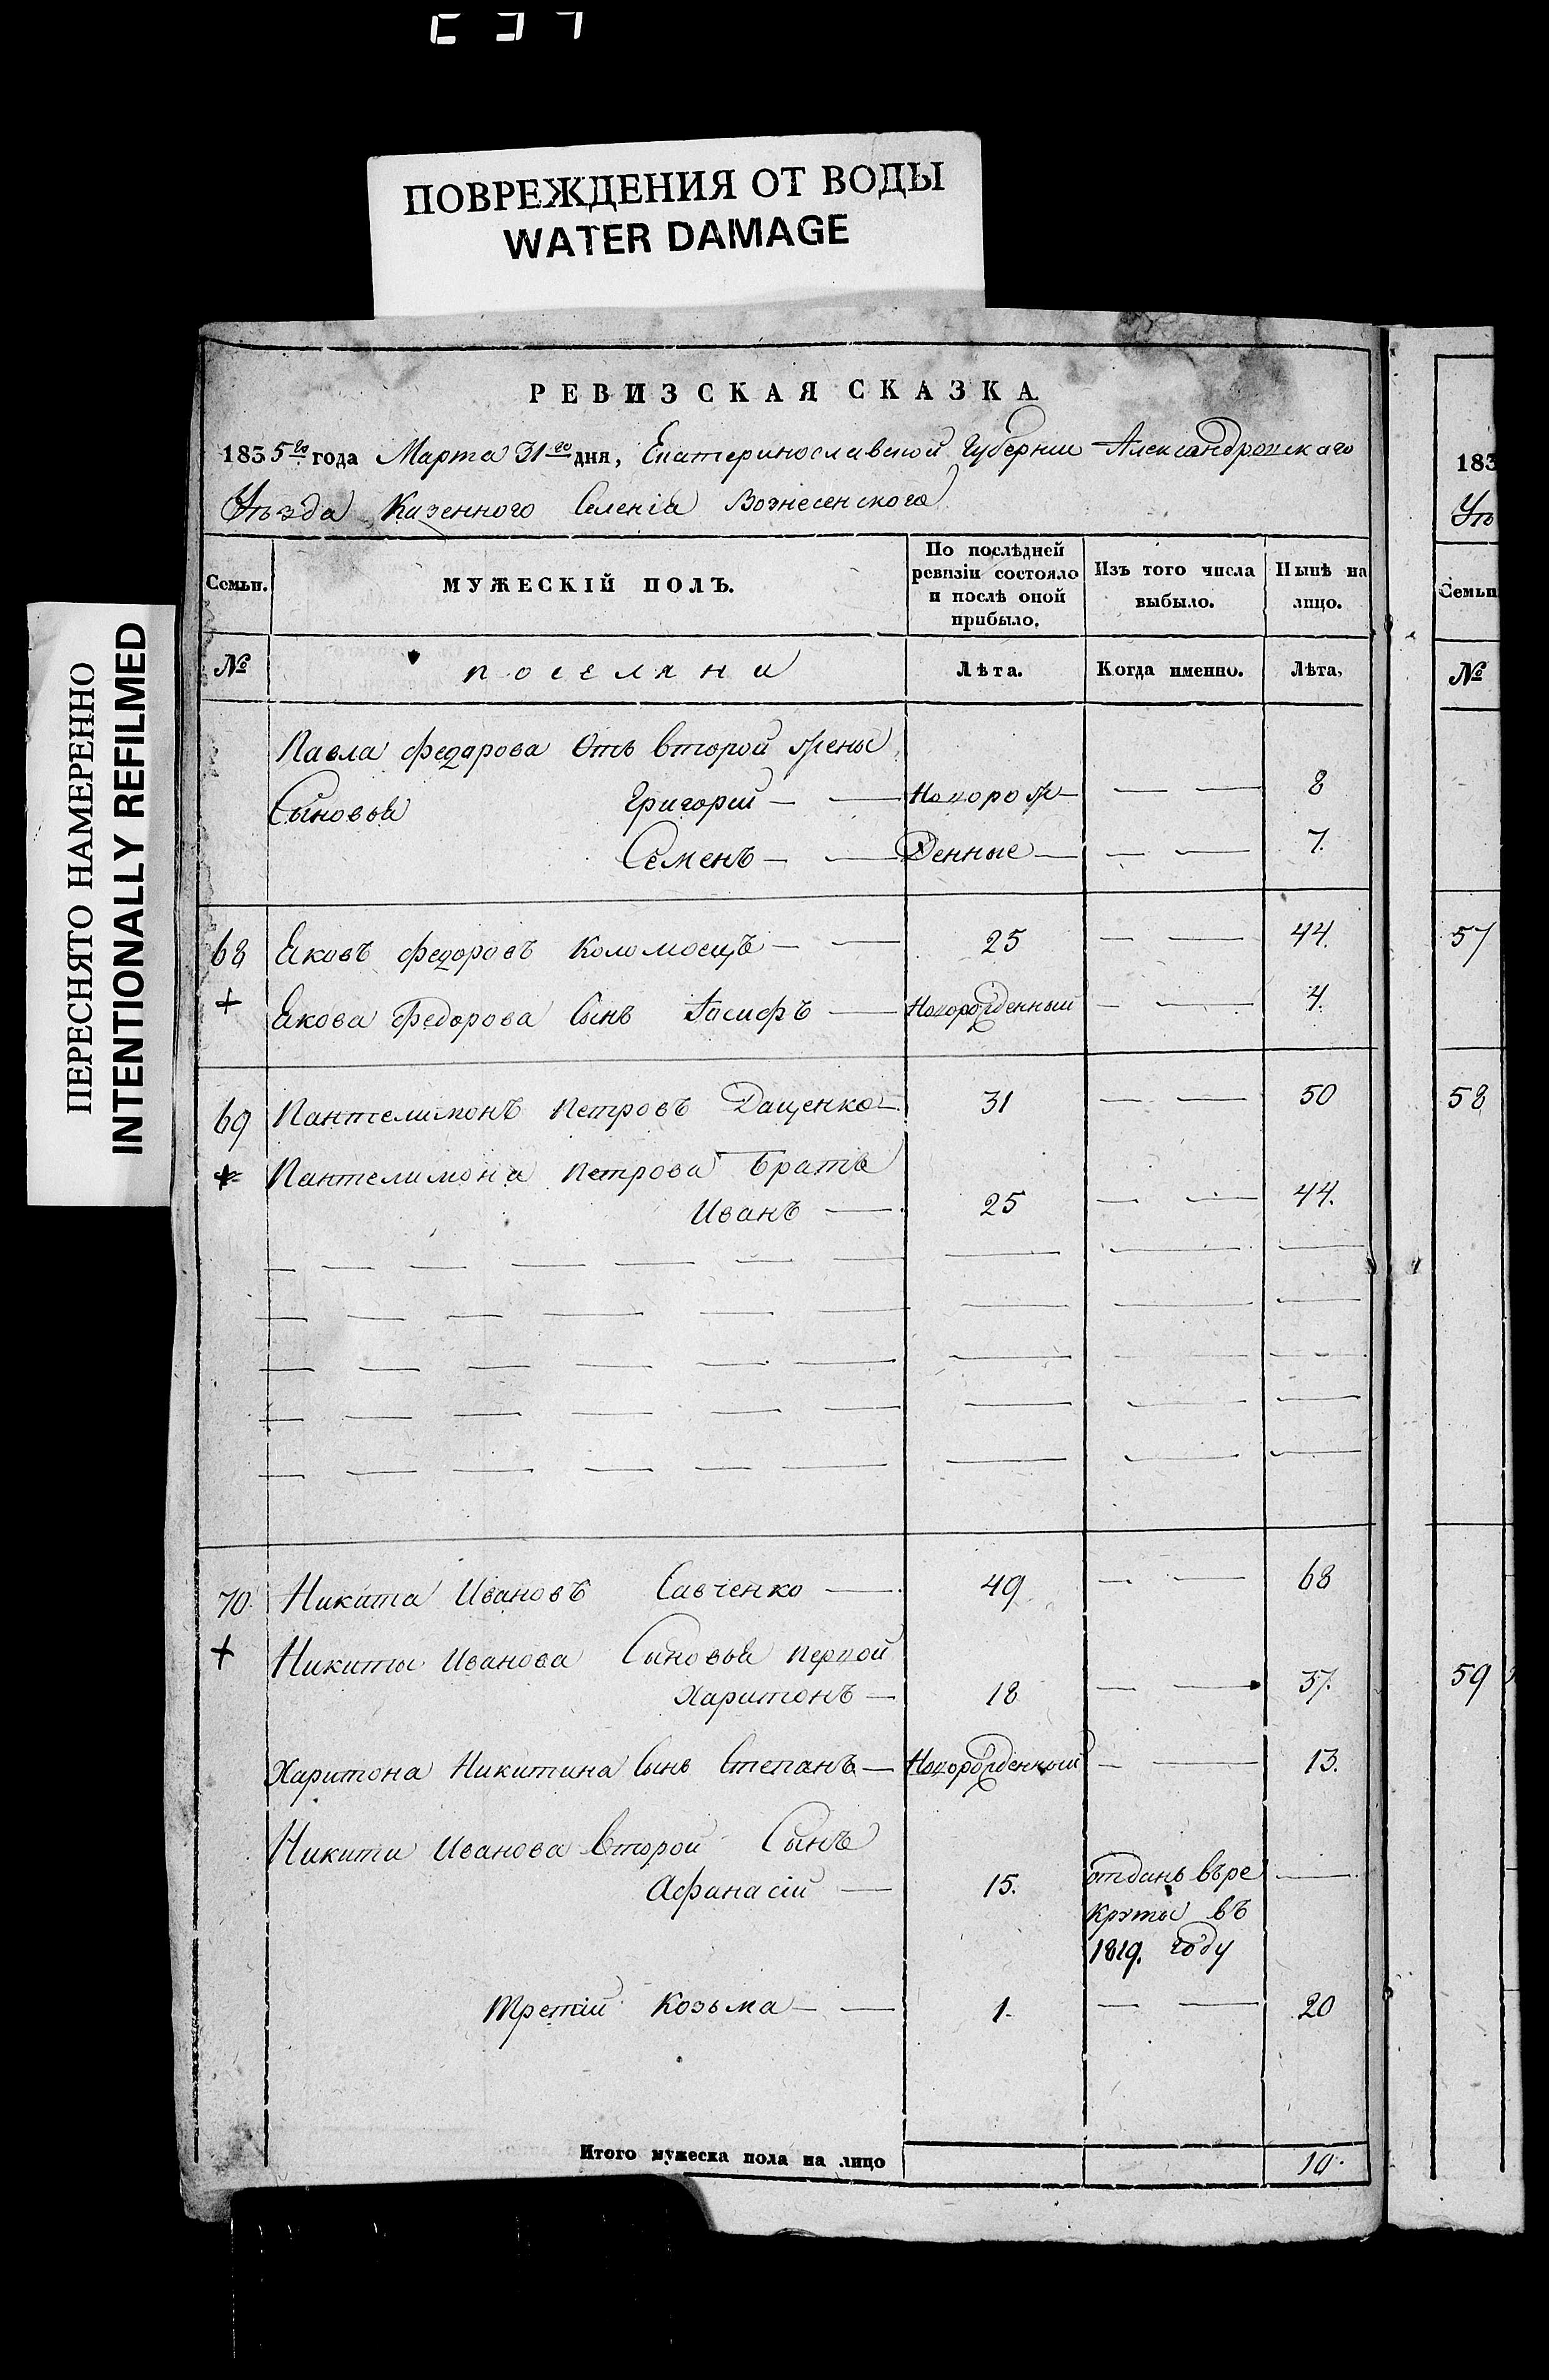 ПОВРЕЖДЕНИЯ ОТ ВОДЫ
WATER DAMAGE
ПЕРЕСНЯТО НАМЕРЕННО
INTENTIONALLY REFILMED
РЕВИЗСКАЯ СКАЗКА
1835го года Марта 31го дня, Екатеринославской Губернии Александровскаго
Уѣзда Казенного Селенія Вознесенского
Семьи. МУЖЕСКІЙ ПОЛЪ. По послѣдней ревизіи состояло и послѣ оной прибыло. Изъ того числа выбыло. Нынѣ на лицо.
№ поселяни Лѣта. Когда именно. Лѣта.
Павла Федарова Отъ второй жены
Сыновья Григорій — — Новорож — — 8
Семенъ — — Денные — — — 7.
68 Яковъ Федоровъ Коломоецъ — — 25 — — 44.
+ Якова Федорова Сынъ Іосифъ — Новорожденный — — 4.
69 Пантелимонъ Петровъ Даценко — 31 — — 50
+ Пантелимона Петрова Братъ
Иванъ — 25 — — 44.
70. Никита Ивановъ Савченко — 49 — — 68
+ Никиты Иванова Сыновья первой
Харитонъ — 18 — — 37.
Харитона Никитина Сынъ Степанъ — Новорожденный — — 13.
Никити Иванова второй Сынъ
Афанасій — 15. отданъ въре —
круты въ
1819. году
Третій Козьма — — 1. — — 20
Итого мужеска пола на лицо 10.
183
Уѣ
Семьи
№
57
58
59